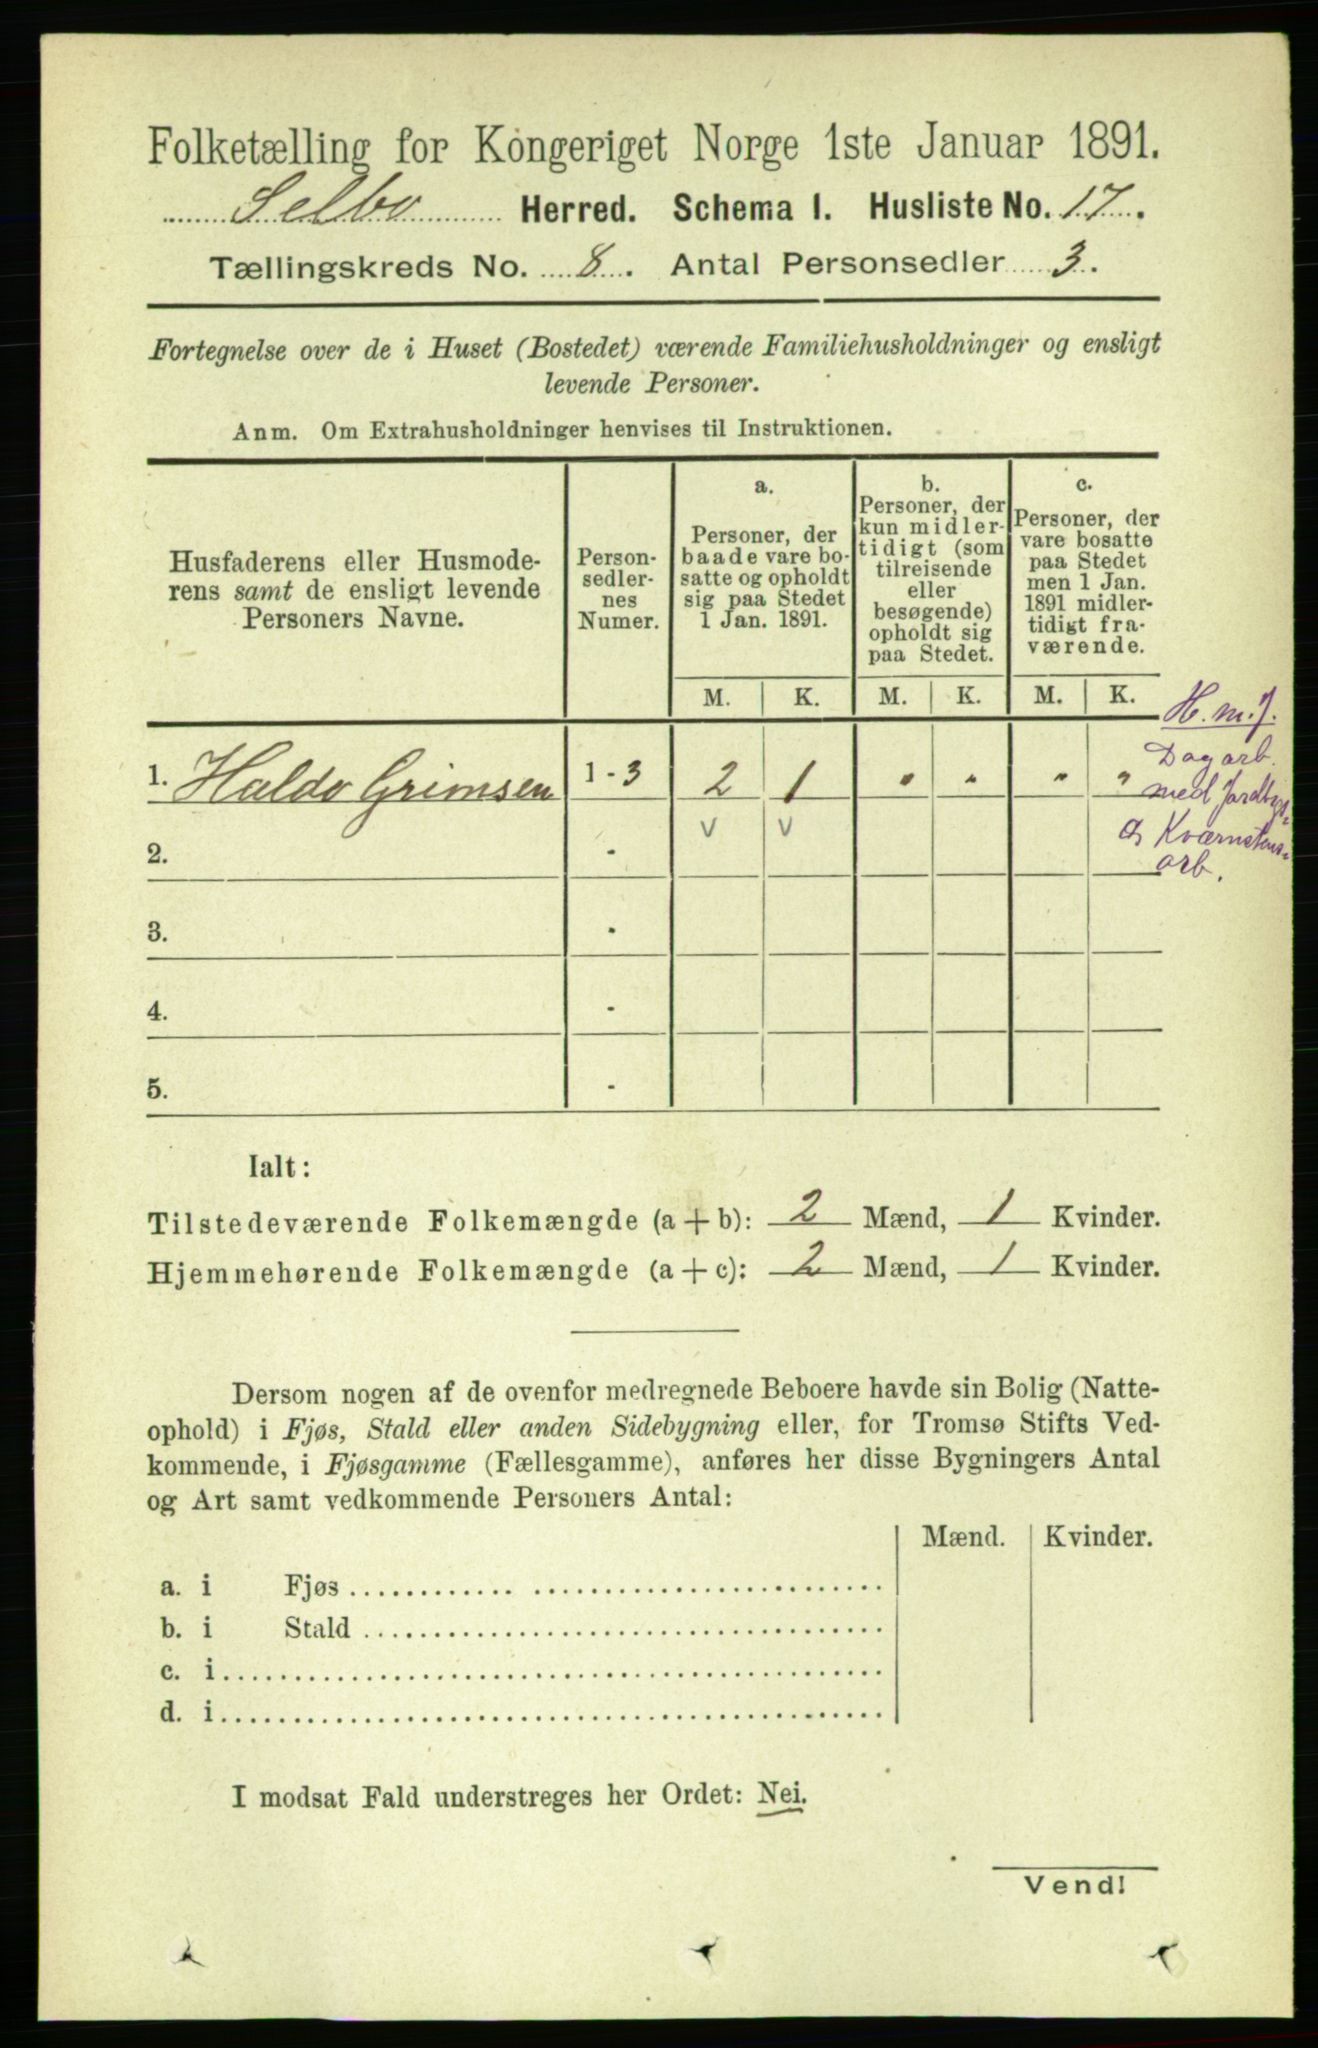 Folketælling for Kongeriget Norge 1ste Januar 1891.
Selbo Herred. Schema I. Husliste No. 17.
Tællingskreds No. 8. Antal Personsedler 3.
Fortegnelse over de i Huset (Bostedet) værende Familiehusholdninger og ensligt
levende Personer.
Anm. Om Extrahusholdninger henvises til Instruktionen.
Husfaderens eller Husmode-
rens samt de ensligt levende
Personers Navne.
Person-
sedler-
nes
Numer.
a.
Personer, der
baade vare bo-
satte og opholdt
sig paa Stedet
1 Jan. 1891.
b.
Personer, der
kun midler-
tidigt (som
tilreisende
eller
besøgende)
opholdt sig
paa Stedet.
c.
Personer, der
vare bosatte
paa Stedet
men 1 Jan.
1891 midler-
tidigt fra-
værende.
M. K. M. K. M. K.
H. m. J.
Dagarb.
med Jordbgs-
& Kværnstens-
arb.
1. Haldo Grimsen 1 - 3 2 1 " " " "
v v
2. -
3. -
4. -
5. -
Ialt:
Tilstedeværende Folkemængde (a + b): 2 Mænd, 1 Kvinder.
Hjemmehørende Folkemængde (a + c): 2 Mænd, 1 Kvinder.
Dersom nogen af de ovenfor medregnede Beboere havde sin Bolig (Natte-
ophold) i Fjøs, Stald eller anden Sidebygning eller, for Tromsø Stifts Ved-
kommende, i Fjøsgamme (Fællesgamme), anføres her disse Bygningers Antal
og Art samt vedkommende Personers Antal:
Mænd. Kvinder.
a. i Fjøs
b. i Stald
c. i
d. i
I modsat Fald understreges her Ordet: Nei.
Vend!